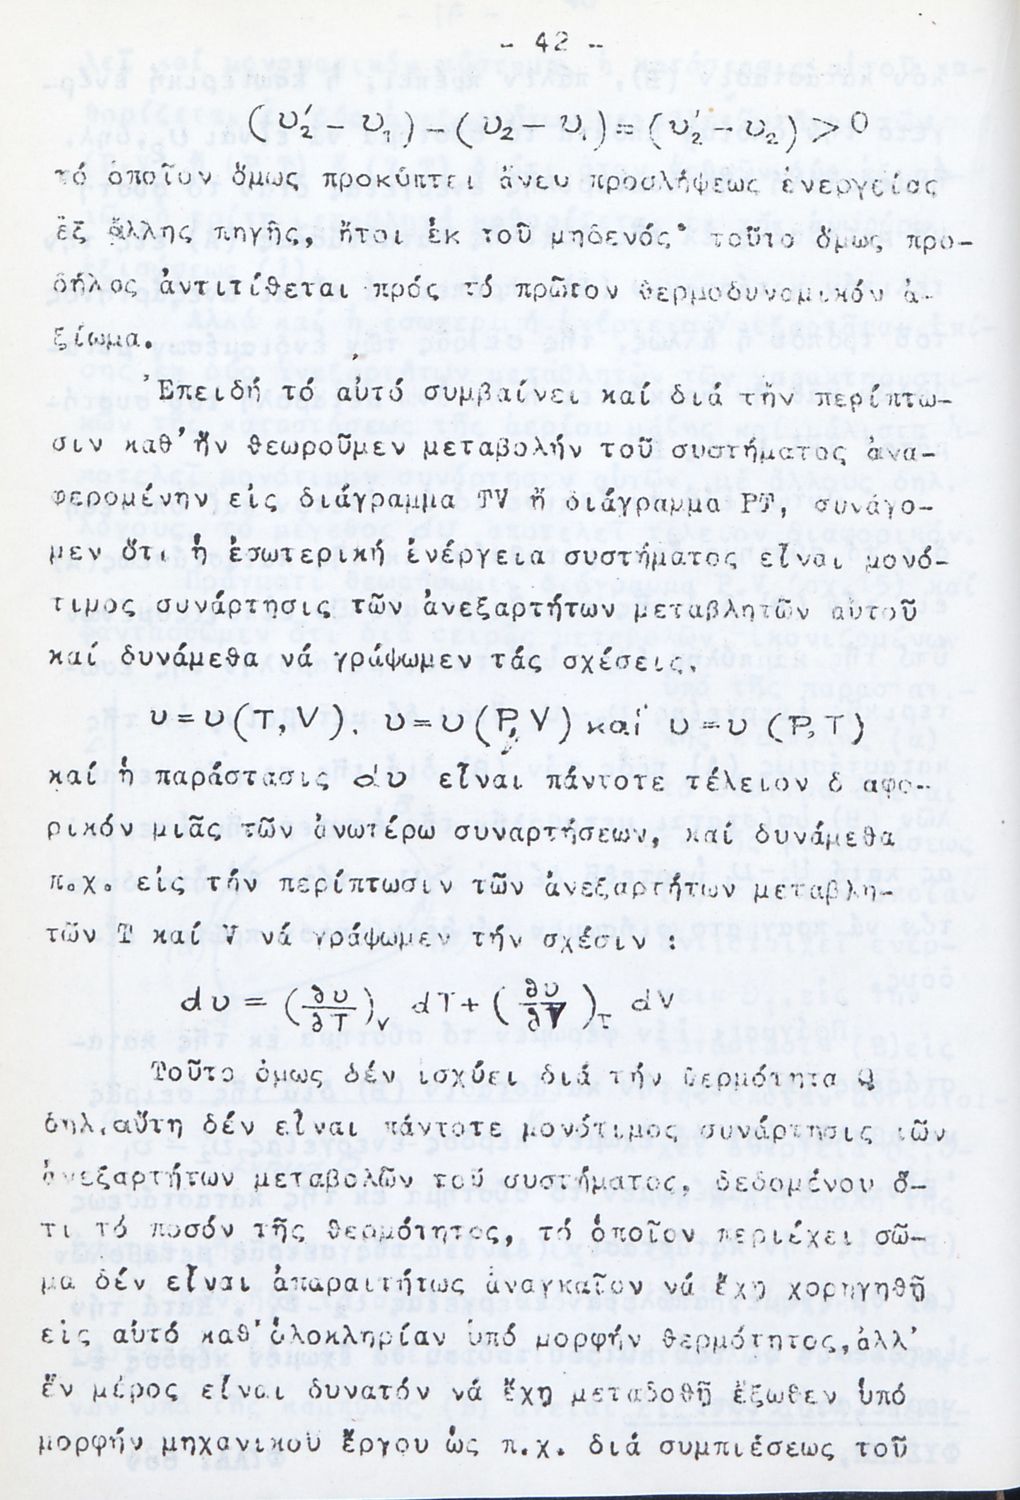 - 42 -
(υ₂′ - υ₁) - (υ₂ - υ₁) = (υ₂′ - υ₂) > 0
τό ὁποῖον ὅμως προκύπτει ἄνευ προσλήψεως ἐνεργείας
ἐξ ἄλλης πηγῆς, ἤτοι ἐκ τοῦ μηδενός· τοῦτο ὅμως προ-
δήλος ἀντιτίθεται πρός τό πρῶτον θερμοδυναμικόν ἀ-
ξίωμα.
Ἐπειδή τό αὐτό συμβαίνει καί διά τήν περίπτω-
σιν καθ' ἥν θεωροῦμεν μεταβολήν τοῦ συστήματος ἀνα-
φερομένην εἰς διάγραμμα TV ἤ διάγραμμα PT, συνάγο-
μεν ὅτι ἡ ἐσωτερική ἐνέργεια συστήματος εἶναι μονό-
τιμος συνάρτησις τῶν ἀνεξαρτήτων μεταβλητῶν αὐτοῦ
καί δυνάμεθα νά γράψωμεν τάς σχέσεις.
υ = υ(T, V). υ = υ(P, V) καί υ = υ(P, T)
καί ἡ παράστασις dυ εἶναι πάντοτε τέλειον δ αφο-
ρικόν μιᾶς τῶν ἀνωτέρω συναρτήσεων, καί δυνάμεθα
π.χ. εἰς τήν περίπτωσιν τῶν ἀνεξαρτήτων μεταβλη-
τῶν T καί V νά γράψωμεν τήν σχέσιν :
dυ = (∂υ/∂T)_V dT + (∂υ/∂V)_T dV
Τοῦτο ὅμως δέν ἰσχύει διά τήν θερμότητα Q
δηλ.αὕτη δέν εἶναι πάντοτε μονότιμος συνάρτησις τῶν
ἀνεξαρτήτων μεταβολῶν τοῦ συστήματος, δεδομένου ὅ-
τι τό ποσόν τῆς θερμότητος, τό ὁποῖον περιέχει σῶ-
μα δέν εἶναι ἀπαραιτήτως ἀναγκαῖον νά ἔχῃ χορηγηθῆ
εἰς αὐτό καθ' ὁλοκληρίαν ὑπό μορφήν θερμότητος,ἀλλ'
ἕν μέρος εἶναι δυνατόν νά ἔχῃ μεταδοθῆ ἔξωθεν ὑπό
μορφήν μηχανικοῦ ἔργου ὡς π.χ. διά συμπιέσεως τοῦ